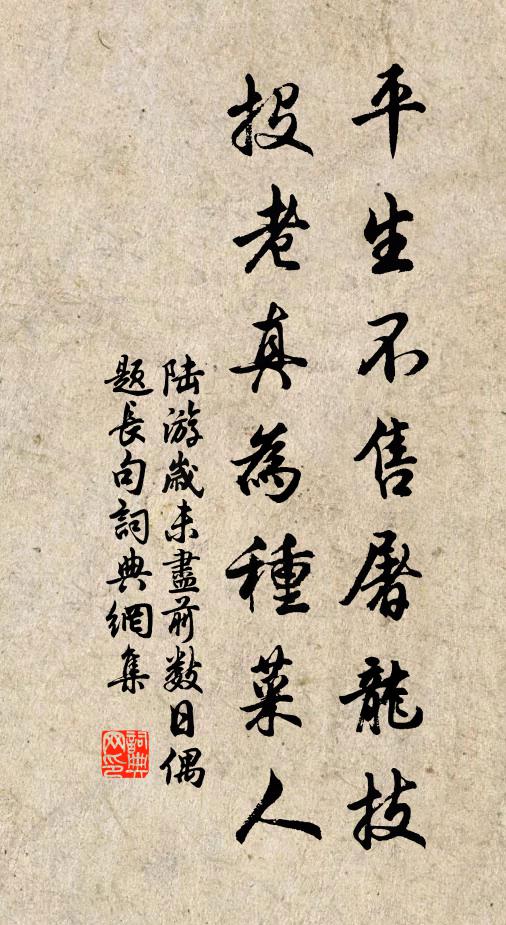 平生不售屠龍技
投老真為種菜人
陸游歲未盡前數日偶
題長句詞典網集
詞典
网印